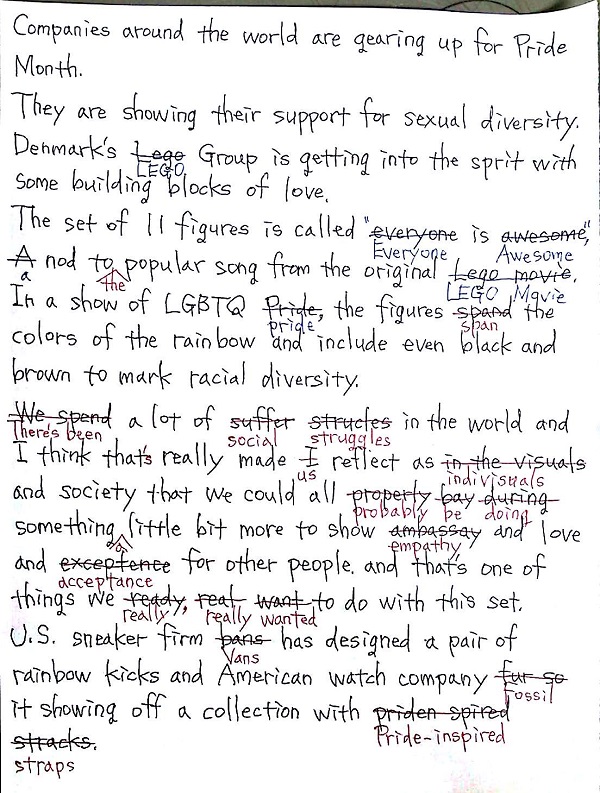 Companies around the world are gearing up for Pride
Month.
They are showing their support for sexual diversity.
Denmark's Lego Group is getting into the sprit with
LEGO
some building blocks of love.
The set of 11 figures is called "everyone is awesome,"
Everyone Awesome
A nod to popular song from the original Lego movie.
a the LEGO Movie
In a show of LGBTQ Pride, the figures spand the
pride span
colors of the rainbow and include even black and
brown to mark racial diversity.
We spend a lot of suffer structes in the world and
There's been social struggles
I think that's really made I reflect as in the visuals
us indivisuals
and society that we could all property bay during
probably be doing
something little bit more to show ambassay and love
a empathy
and exceptence for other people. and that's one of
acceptance
things we ready, reat want to do with this set.
really, really wanted
U.S. sneaker firm pans has designed a pair of
Vans
rainbow kicks and American watch company fur so
Fossil
it showing off a collection with priden spired
Pride-inspired
stracks.
straps